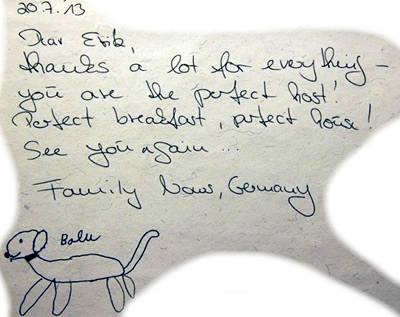 20.7.13
Dear Erik,
thanks a lot for everything –
you are the perfect host!
Perfect breakfast, prfect house!
See you again ...
Family , Germany
Balu